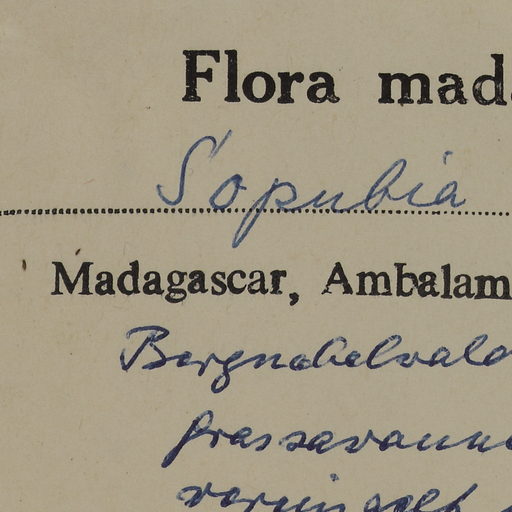 Flora mada
Sopubia
Madagascar, Ambalam
Bergnebelwald
Grassavanne